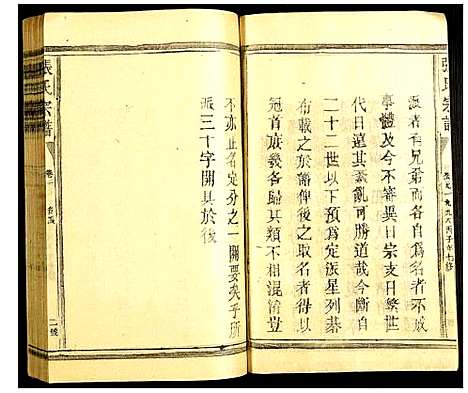 張氏宗譜
派者毛兄弟而各自爲名者不成
事體及今不審異日宗支日繁世
代日遠其紊亂可勝道哉今斷自
二十二世以下預爲定派星列碁
布載之於譜俾後之取名者得以
冠首族羲各歸其類不相混淆豈
不亦正名定分之一關要矣乎所
派三十字開具於後
張氏宗譜
卷一